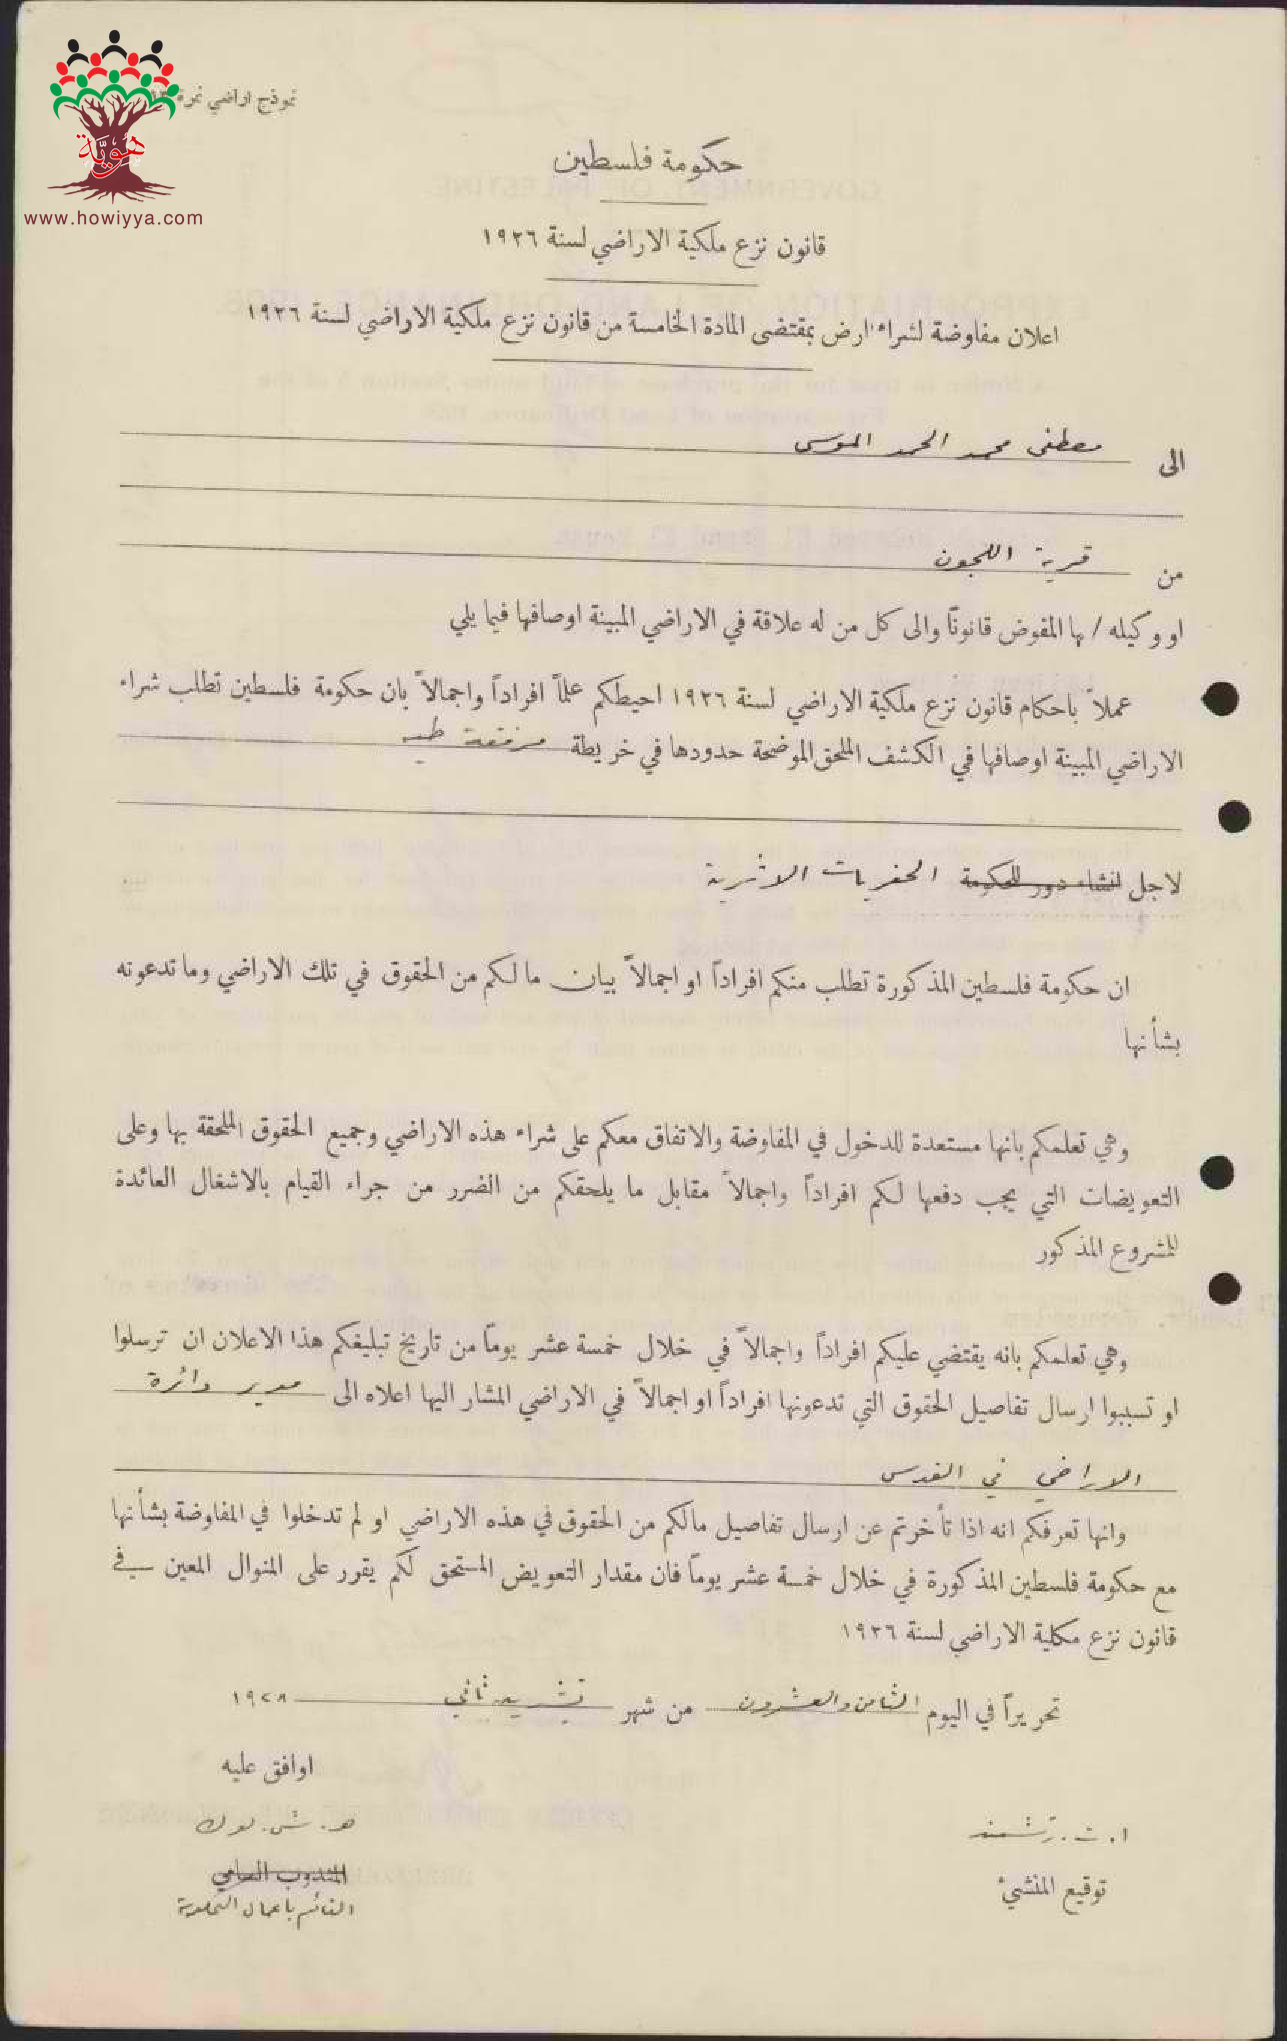 هويّة
www.howiyya.com
نموذج اراضي نمرة
حكومة فلسطين
قانون نزع ملكية الاراضي لسنة ١٩٢٦
اعلان مفاوضة لشراء ارض بمقتضى المادة الخامسة من قانون نزع ملكية الاراضي لسنة ١٩٢٦
الى مصطفى محمد الحمد الموسى
من قرية اللجون
او وكيله / بها المفوض قانونًا والى كل من له علاقة في الاراضي المبينة اوصافها فيما يلي
عملاً باحكام قانون نزع ملكية الاراضي لسنة ١٩٢٦ احيطكم علماً افراداً واجمالاً بان حكومة فلسطين تطلب شراء
الاراضي المبينة اوصافها في الكشف الملحق الموضحة حدودها في خريطة مرفقة طيه
لاجل انشاء دور للحكومة الحفريات الاثرية
ان حكومة فلسطين المذكورة تطلب منكم افراداً او اجمالاً بيان ما لكم من الحقوق في تلك الاراضي وما تدعونه
بشأنها
وهي تعلمكم بانها مستعدة للدخول في المفاوضة والاتفاق معكم على شراء هذه الاراضي وجميع الحقوق الملحقة بها وعلى
التعويضات التي يجب دفعها لكم افراداً واجمالاً مقابل ما يلحقكم من الضرر من جراء القيام بالاشغال العائدة
للمشروع المذكور
وهي تعلمكم بانه يقتضي عليكم افراداً واجمالاً في خلال خمسة عشر يوماً من تاريخ تبليغكم هذا الاعلان ان ترسلوا
او تسببوا ارسال تفاصيل الحقوق التي تدعونها افراداً او اجمالاً في الاراضي المشار اليها اعلاه الى مدير دائرة
الاراضي في القدس
وانها تعرفكم انه اذا تأخرتم عن ارسال تفاصيل مالكم من الحقوق في هذه الاراضي او لم تدخلوا في المفاوضة بشأنها
مع حكومة فلسطين المذكورة في خلال خمسة عشر يوماً فان مقدار التعويض المستحق لكم يقرر على المنوال المعين في
قانون نزع مكلية الاراضي لسنة ١٩٢٦
تحريراً في اليوم الثامن والعشرون من شهر تشرين ثاني ١٩٢٨
اوافق عليه
ه. ش. لوك
ا. ت.
المندوب السامي
توقيع المنشيء
القائم باعمال الحكومة